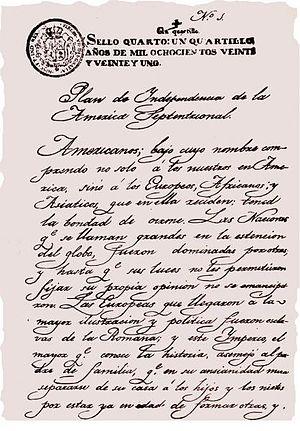 Nº 1.
Un quartillo
SELLO QUARTO: UN QUARTILLO
AÑOS DE MIL OCHOCIENTOS VEINTE
Y VEINTE Y UNO.
Plan de Independencia de la
America Septentrional.
Americanos, bajo cuyo nombre com
prendo no solo á los nuestros en Ame
rica, sinó a los Europeos, Africanos, y
Asiaticos que en ella reciden: tened
la bondad de oirme. Las Naciones
q.e se llaman grandes en la estencion
del globo, fueron dominadas por otras
y hasta q.e sus luces no les permitieron
fijar su propia opinion no se emancipa
ron. Las Europeas que llegaron a la
mayor ilustracion y politica fueron escla
vas de la Romana; y este Imperio, el
mayor q.e conoce la historia, asemejo al pa
dre de familia, q.e en su ancianidad mira
separarse de su casa á los hijos y los nietos
por estar ya en edad de formar otras, y